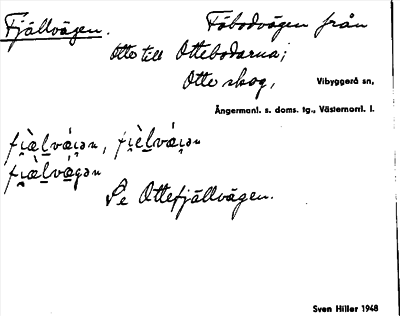 Fjällvägen. Fäbodvägen från
Otto till Ottebodarna;
Otte skog, Vibyggerå sn,
Ångermanl. s. doms. tg., Västernorrl. l.
Se Ottefjällvägen.
Sven Hiller 1948